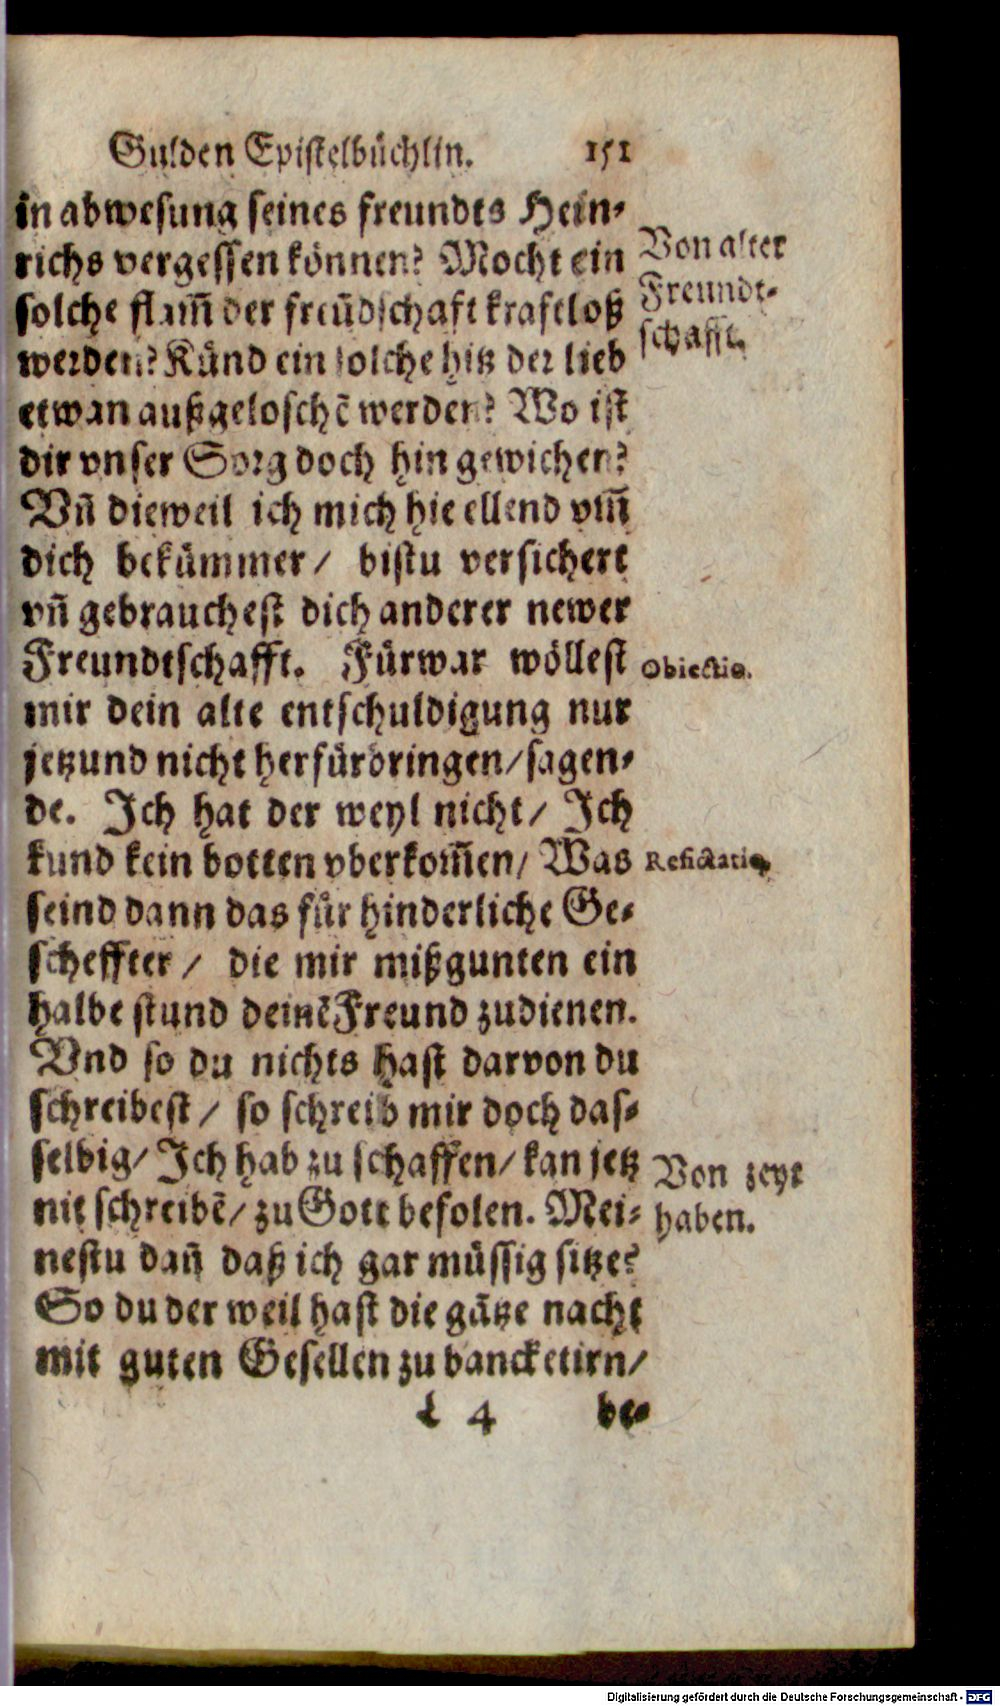 Gulden Epistelbüchlin. 151
in abwesung seines freundts Hein-
richs vergessen können? Mocht ein
solche flam̃ der freũdschaft kraftloß
werden? Künd ein solche hitz der lieb
etwan außgeloschẽ werden? Wo ist
dir vnser Sorg doch hin gewichen?
Vñ dieweil ich mich hie ellend vm̃
dich bekümmer/ bistu versichert
vñ gebrauchest dich anderer newer
Freundtschafft. Fürwar wöllest
mir dein alte entschuldigung nur
jetzund nicht herfürbringen/sagen-
de. Ich hat der weyl nicht/ Ich
kund kein botten vberkom̃en/ Was
seind dann das für hinderliche Ge-
scheffter/ die mir mißgunten ein
halbe stund deinẽ Freund zudienen.
Vnd so du nichts hast darvon du
schreibest/ so schreib mir doch das-
selbig/ Ich hab zu schaffen/ kan jetz
nit schreibẽ/ zu Gott befolen. Mei-
nestu dañ daß ich gar müssig sitze?
So du der weil hast die gãtze nacht
mit guten Gesellen zu bancketirn/
L 4 be-
Von alter
Freundt-
schafft.
Obiectio.
Refictatio
Von zeyt
haben.
Digitalisierung gefördert durch die Deutsche Forschungsgemeinschaft - DFG